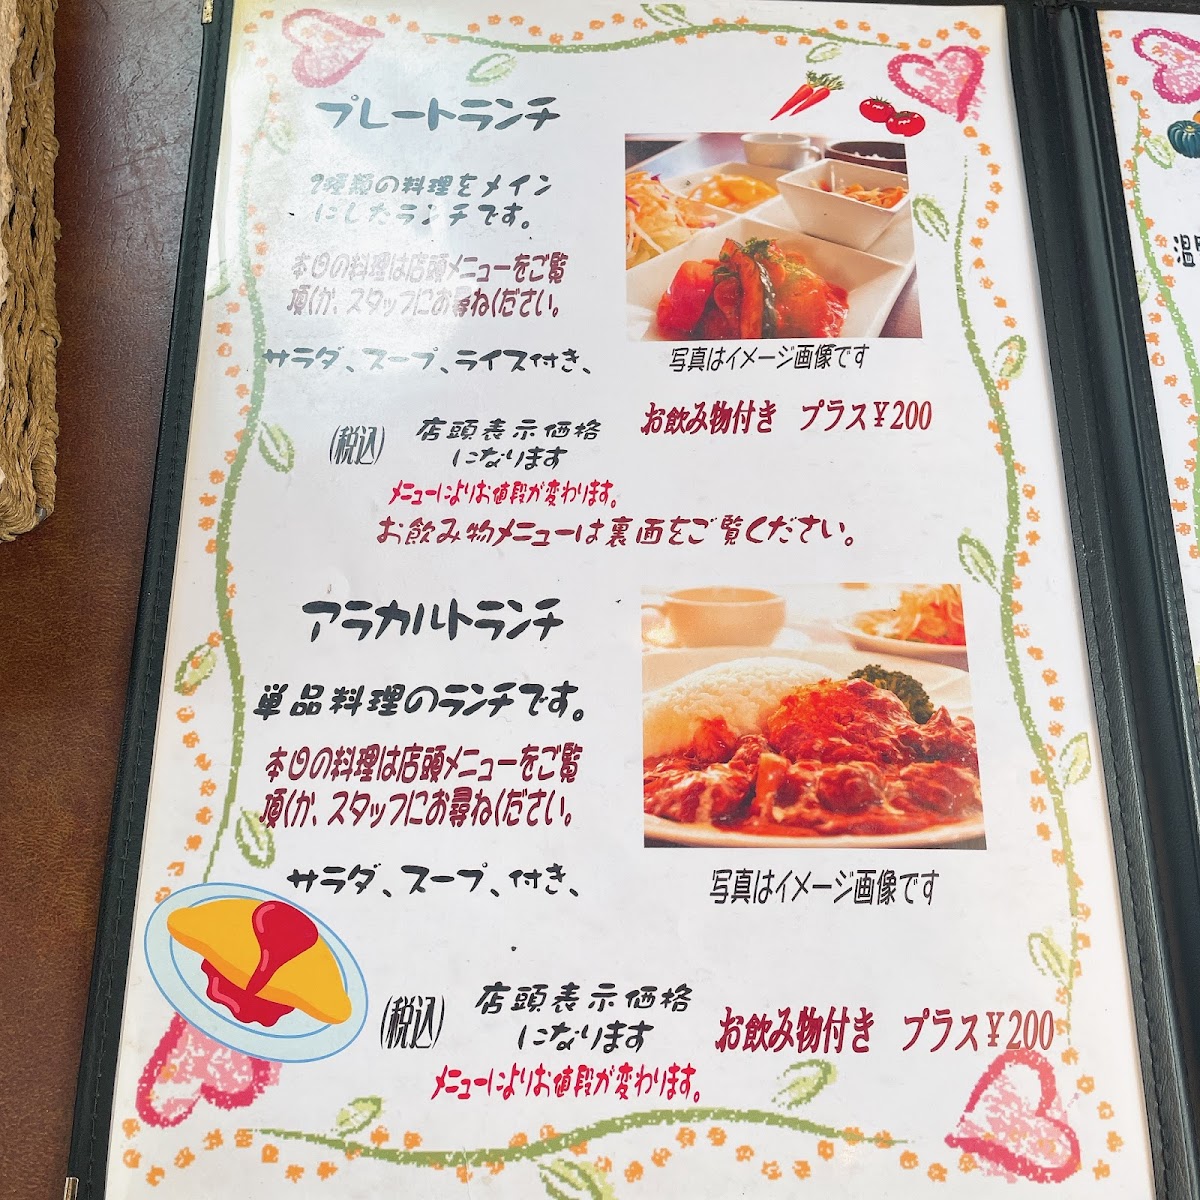 プレートランチ
種類の料理をメイン
にしたランチです。
本日の料理は店頭メニューをご覧
頂くか、スタッフにお尋ねください。
サラダ、スープ、ライス付き、
写真はイメージ画像です
お飲み物付き プラス￥200
(税込) 店頭表示価格
になります
メニューによりお値段が変わります。
お飲み物メニューは裏面をご覧ください。
アラカルトランチ
単品料理のランチです。
本日の料理は店頭メニューをご覧
頂くか、スタッフにお尋ねください。
サラダ、スープ、付き、
写真はイメージ画像です
(税込) 店頭表示価格
になります
お飲み物付き プラス￥200
メニューによりお値段が変わります。
温